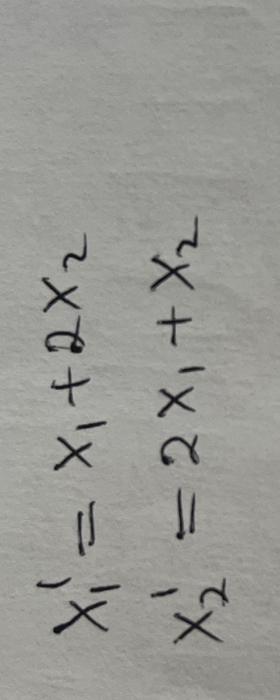 x₁' = x₁ + 2x₂
x₂' = 2x₁ + x₂